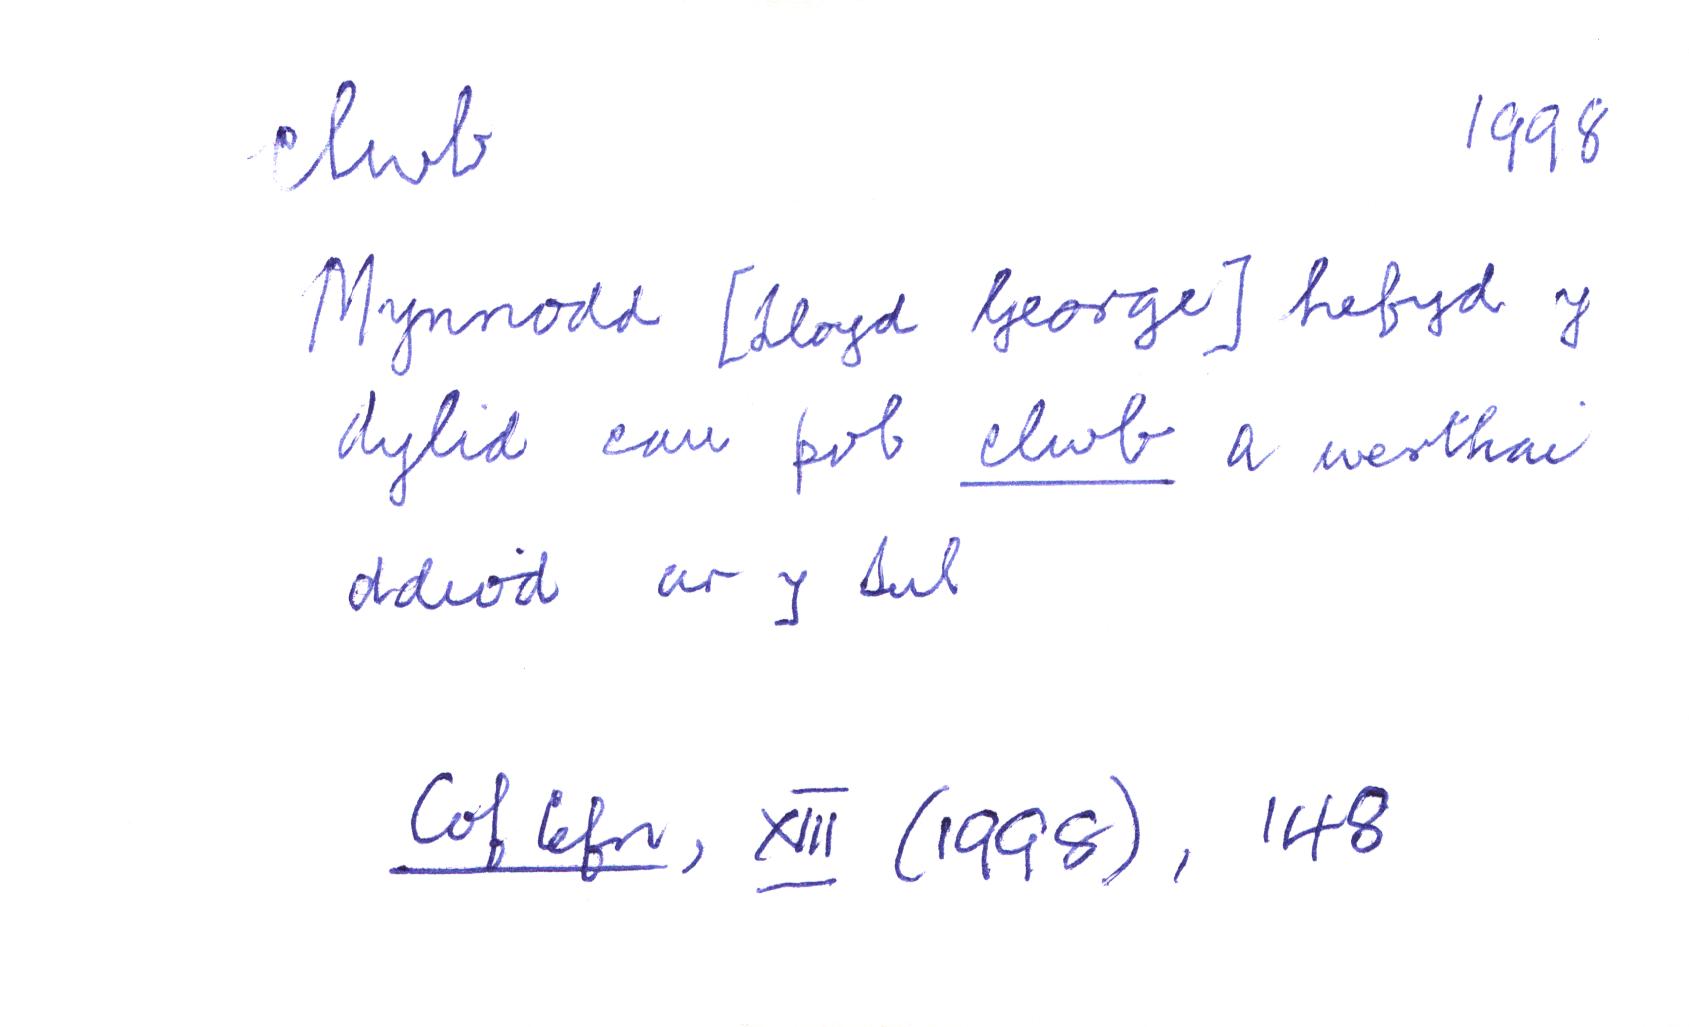 clwb 1998
Mynnodd [Lloyd George] hefyd y
dylid cau pob clwb a werthai
ddiod ar y Sul
Cof Cefn, XIII (1998), 148